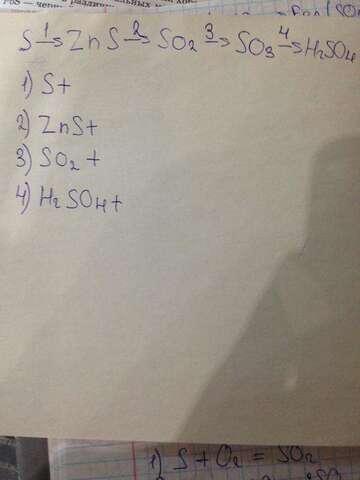 S –¹→ ZnS –²→ SO₂ –³→ SO₃ –⁴→ H₂SO₄
1) S+
2) ZnS+
3) SO₂ +
4) H₂SO4+
1) S + O₂ = SO₂